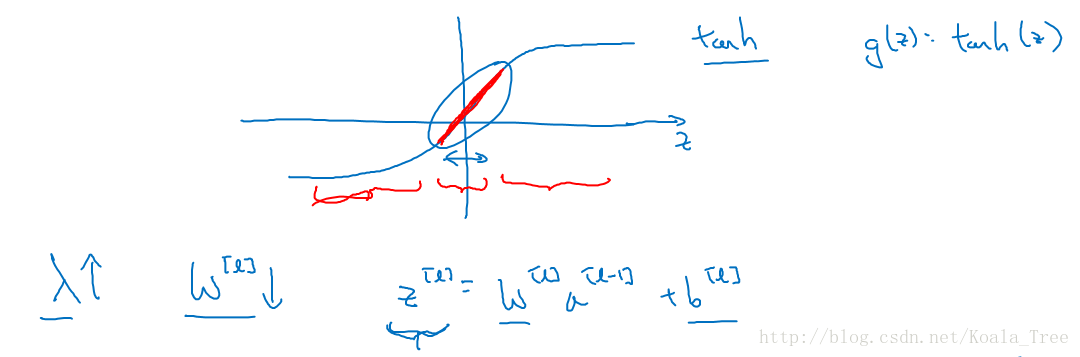 tanh g(z) = tanh(z)
z
λ↑ W^[l]↓ z^[l] = W^[l] a^[l-1] + b^[l]
http://blog.csdn.net/Koala_Tree